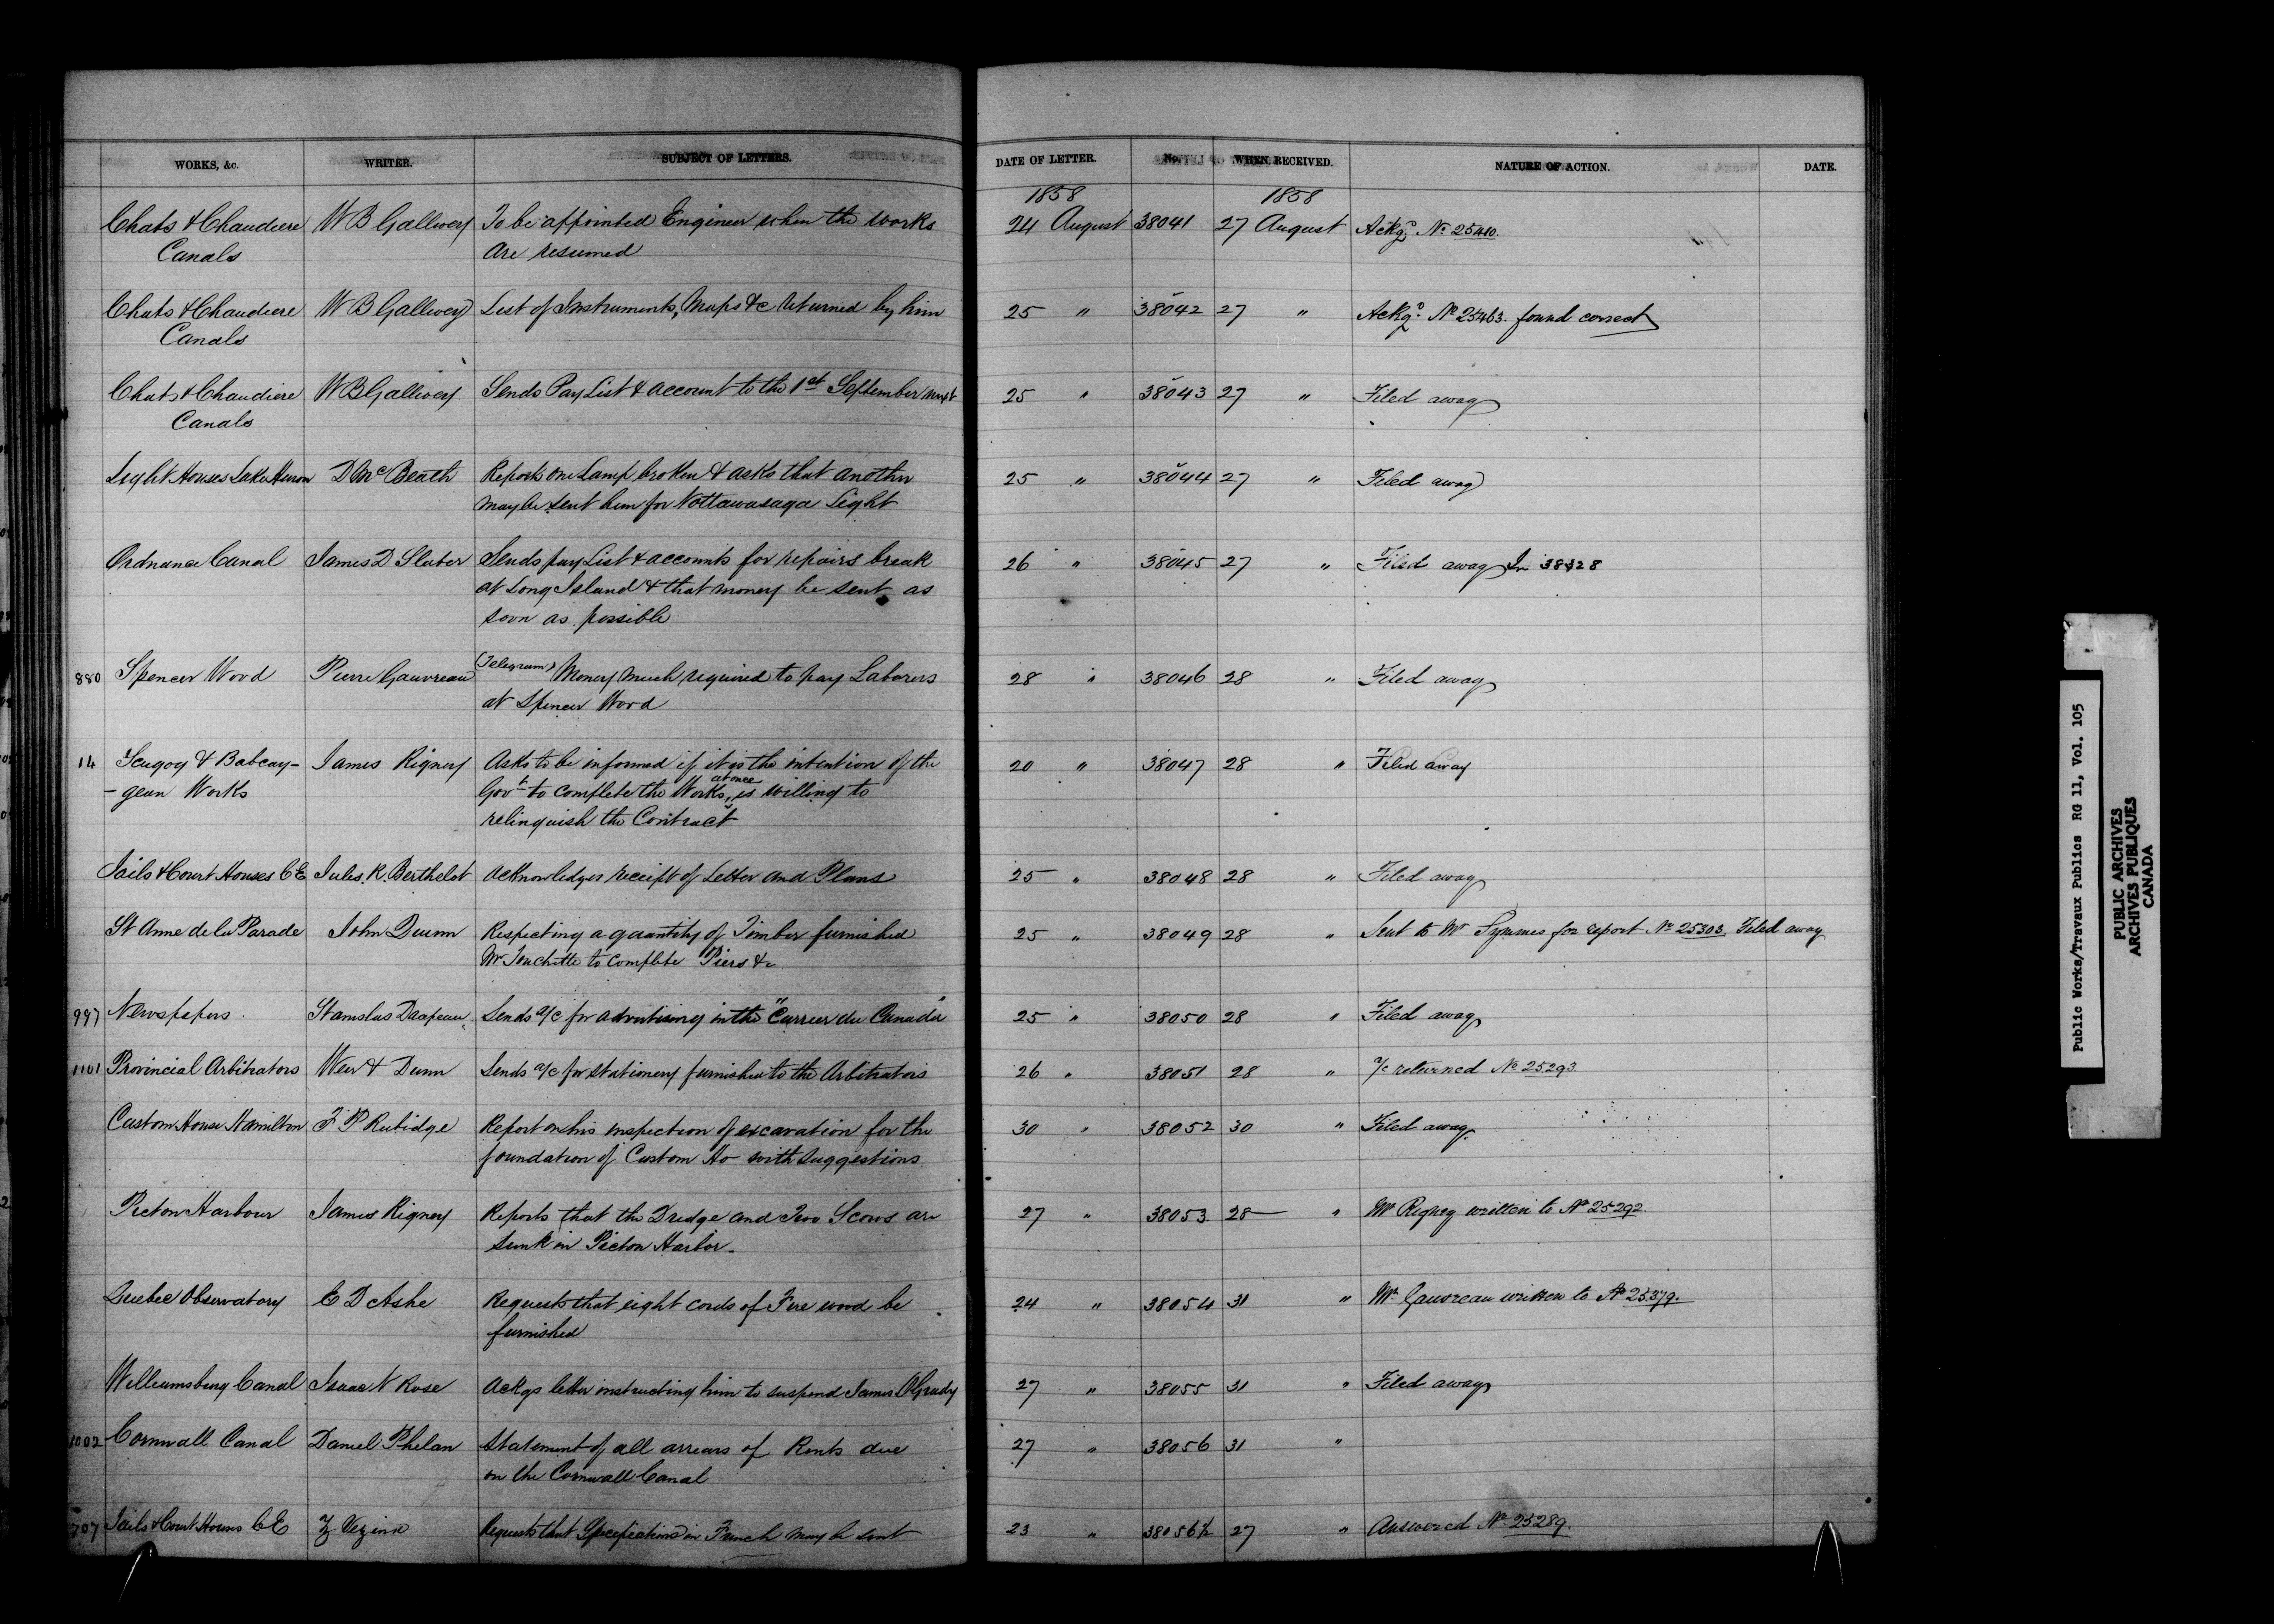 WORKS, &c. WRITER. SUBJECT OF LETTERS. DATE OF LETTER. No. WHEN RECEIVED. NATURE OF ACTION. DATE.
1858 1858
Chats & Chaudiere W B Gallwey To be appointed Engineer when the works 24 August 38041 27 August Ackgd. No 25410.
Canals are resumed
Chats & Chaudiere W B Gallwey List of Instruments, Maps &c returned by him 25 " 38042 27 " Ackgd. No 25463. found correct
Canals
Chats & Chaudiere W B Gallwey Sends Pay List & account to the 1st September next 25 " 38043 27 " Filed away
Canals
Light Houses Lake Huron D McBeath Reports one Lamp broken & asks that another 25 " 38044 27 " Filed away
may be sent him for Nottawasaga Light
Ordnance Canal James D Slater Sends pay List & accounts for repairs break 26 " 38045 27 " Filed away In 38328
at Long Island & that money be sent as
soon as possible
880 Spencer Wood Pierre Gauvreau (Telegram) Money much required to pay Laborers 28 " 38046 28 " Filed away
at Spencer Wood
14 Scugog & Bobcay- James Rigney Asks to be informed if it is the intention of the 20 " 38047 28 " Filed away
at once
-geon Works Govt to complete the Works, is willing to
relinquish the Contract
Jails & Court Houses C E Jules. R. Berthelot acknowledges receipt of Letter and Plans 25 " 38048 28 " Filed away
St Anne de la Parade John Dunn Respecting a quantity of Timber furnished 25 " 38049 28 " Sent to Mr Symmes for report No 25303. Filed away
Mr Touchette to complete Piers &c
997 Newspapers. Stanislas Drapeau. Sends a/c for advertising in the "Currier du Canada" 25 " 38050 28 " Filed away
1101 Provincial Arbitrators Weir & Dunn Sends a/c for stationery furnished to the Arbitrators 26 " 38051 28 " a/c returned No 25293.
Custom House Hamilton F P Rubidge Report on his inspection of excavation for the 30 " 38052 30 " Filed away.
foundation of Custom Ho with suggestions
Picton Harbour James Rigney Reports that the Dredge and Two Scows are 27 " 38053. 28 " Mr Rigney written to No 25292.
sunk in Picton Harbor.
Quebec Observatory E D Ashe Requests that eight cords of Fire wood be 24 " 38054 31 " Mr Gauvreau written to No 25379.
furnished
Williamsburg Canal Isaac N Rose Ackgs letter instructing him to suspend James OGrady 27 " 38055 31 " Filed away
1002 Cornwall Canal Daniel Phelan Statement of all arrears of Rents due 27 " 38056 31 "
on the Cornwall Canal
707 Jails & Court Houses C E Z Vezina Requests that Specifications in French may be sent 23 " 38056½ 27 " Answered No 25289.
Public Works/Travaux Publics RG 11, Vol. 105
PUBLIC ARCHIVES
ARCHIVES PUBLIQUES
CANADA